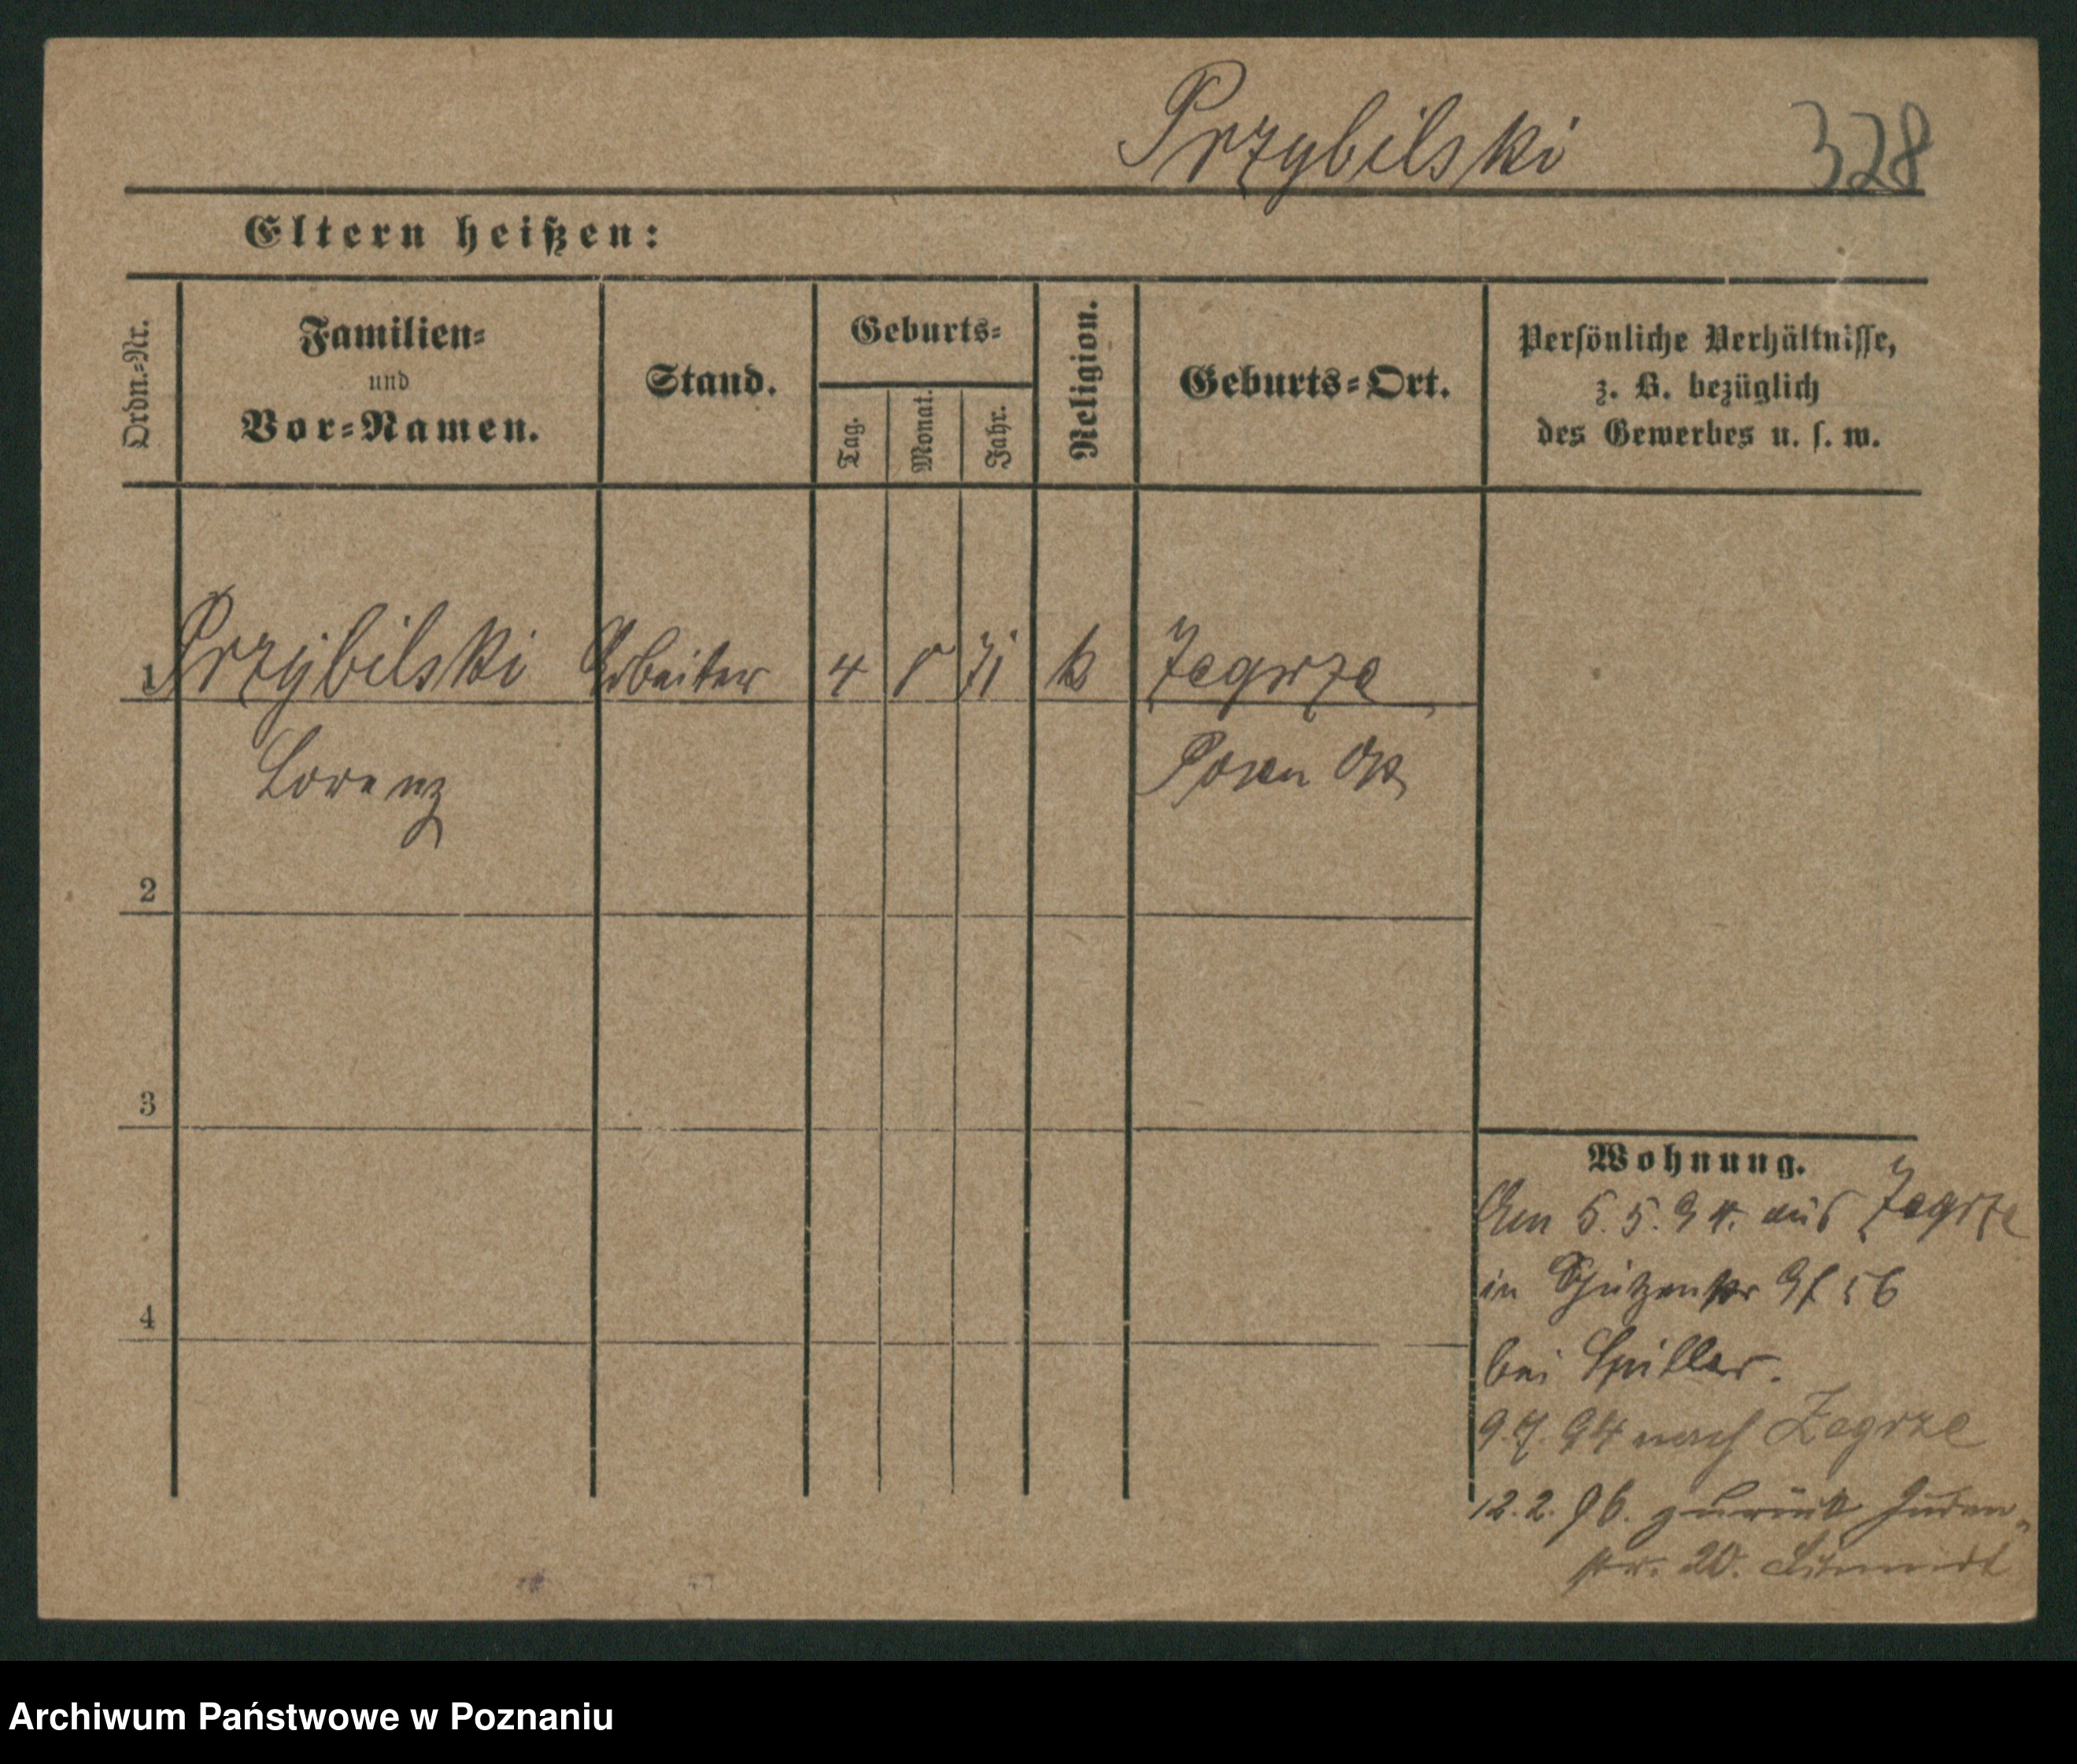 Przybilski 328
Eltern heißen:
Ordn.=Nr.
Familien=
und
Vor=Namen.
Stand.
Geburts=
Tag.
Monat.
Jahr.
Religion.
Geburts=Ort.
Persönliche Verhältnisse,
z. B. bezüglich
des Gewerbes u. s. w.
1 Przybilski Arbeiter 4 8 71 k Zegrze
Lorenz Posen
2
3
4
Wohnung.
Am 5. 5. 94. aus Zegrze
in Schützenstr
bei Spiller.
9. 7. 94 nach Zegrze
12. 2. 96. zurück Juden-
str. 20. Schmidt
Archiwum Państwowe w Poznaniu